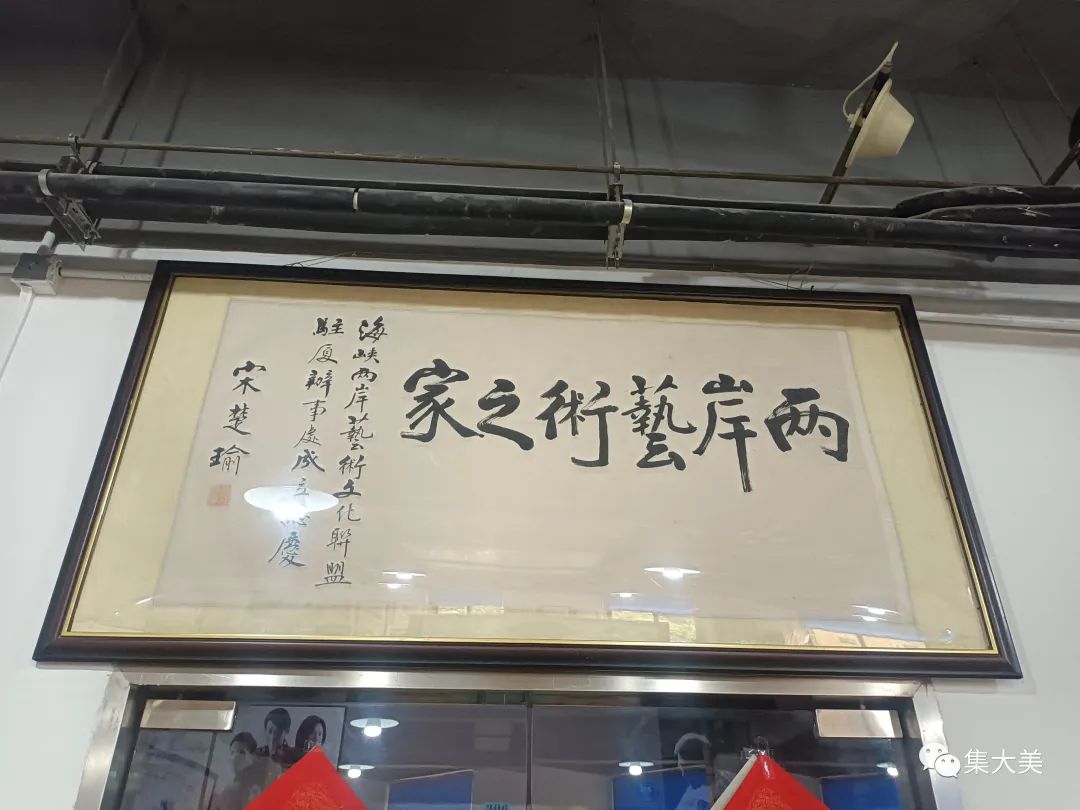 两岸藝術之家
海峡两岸藝術文化聯盟
駐厦辦事處成立誌慶
宋楚瑜
集大美